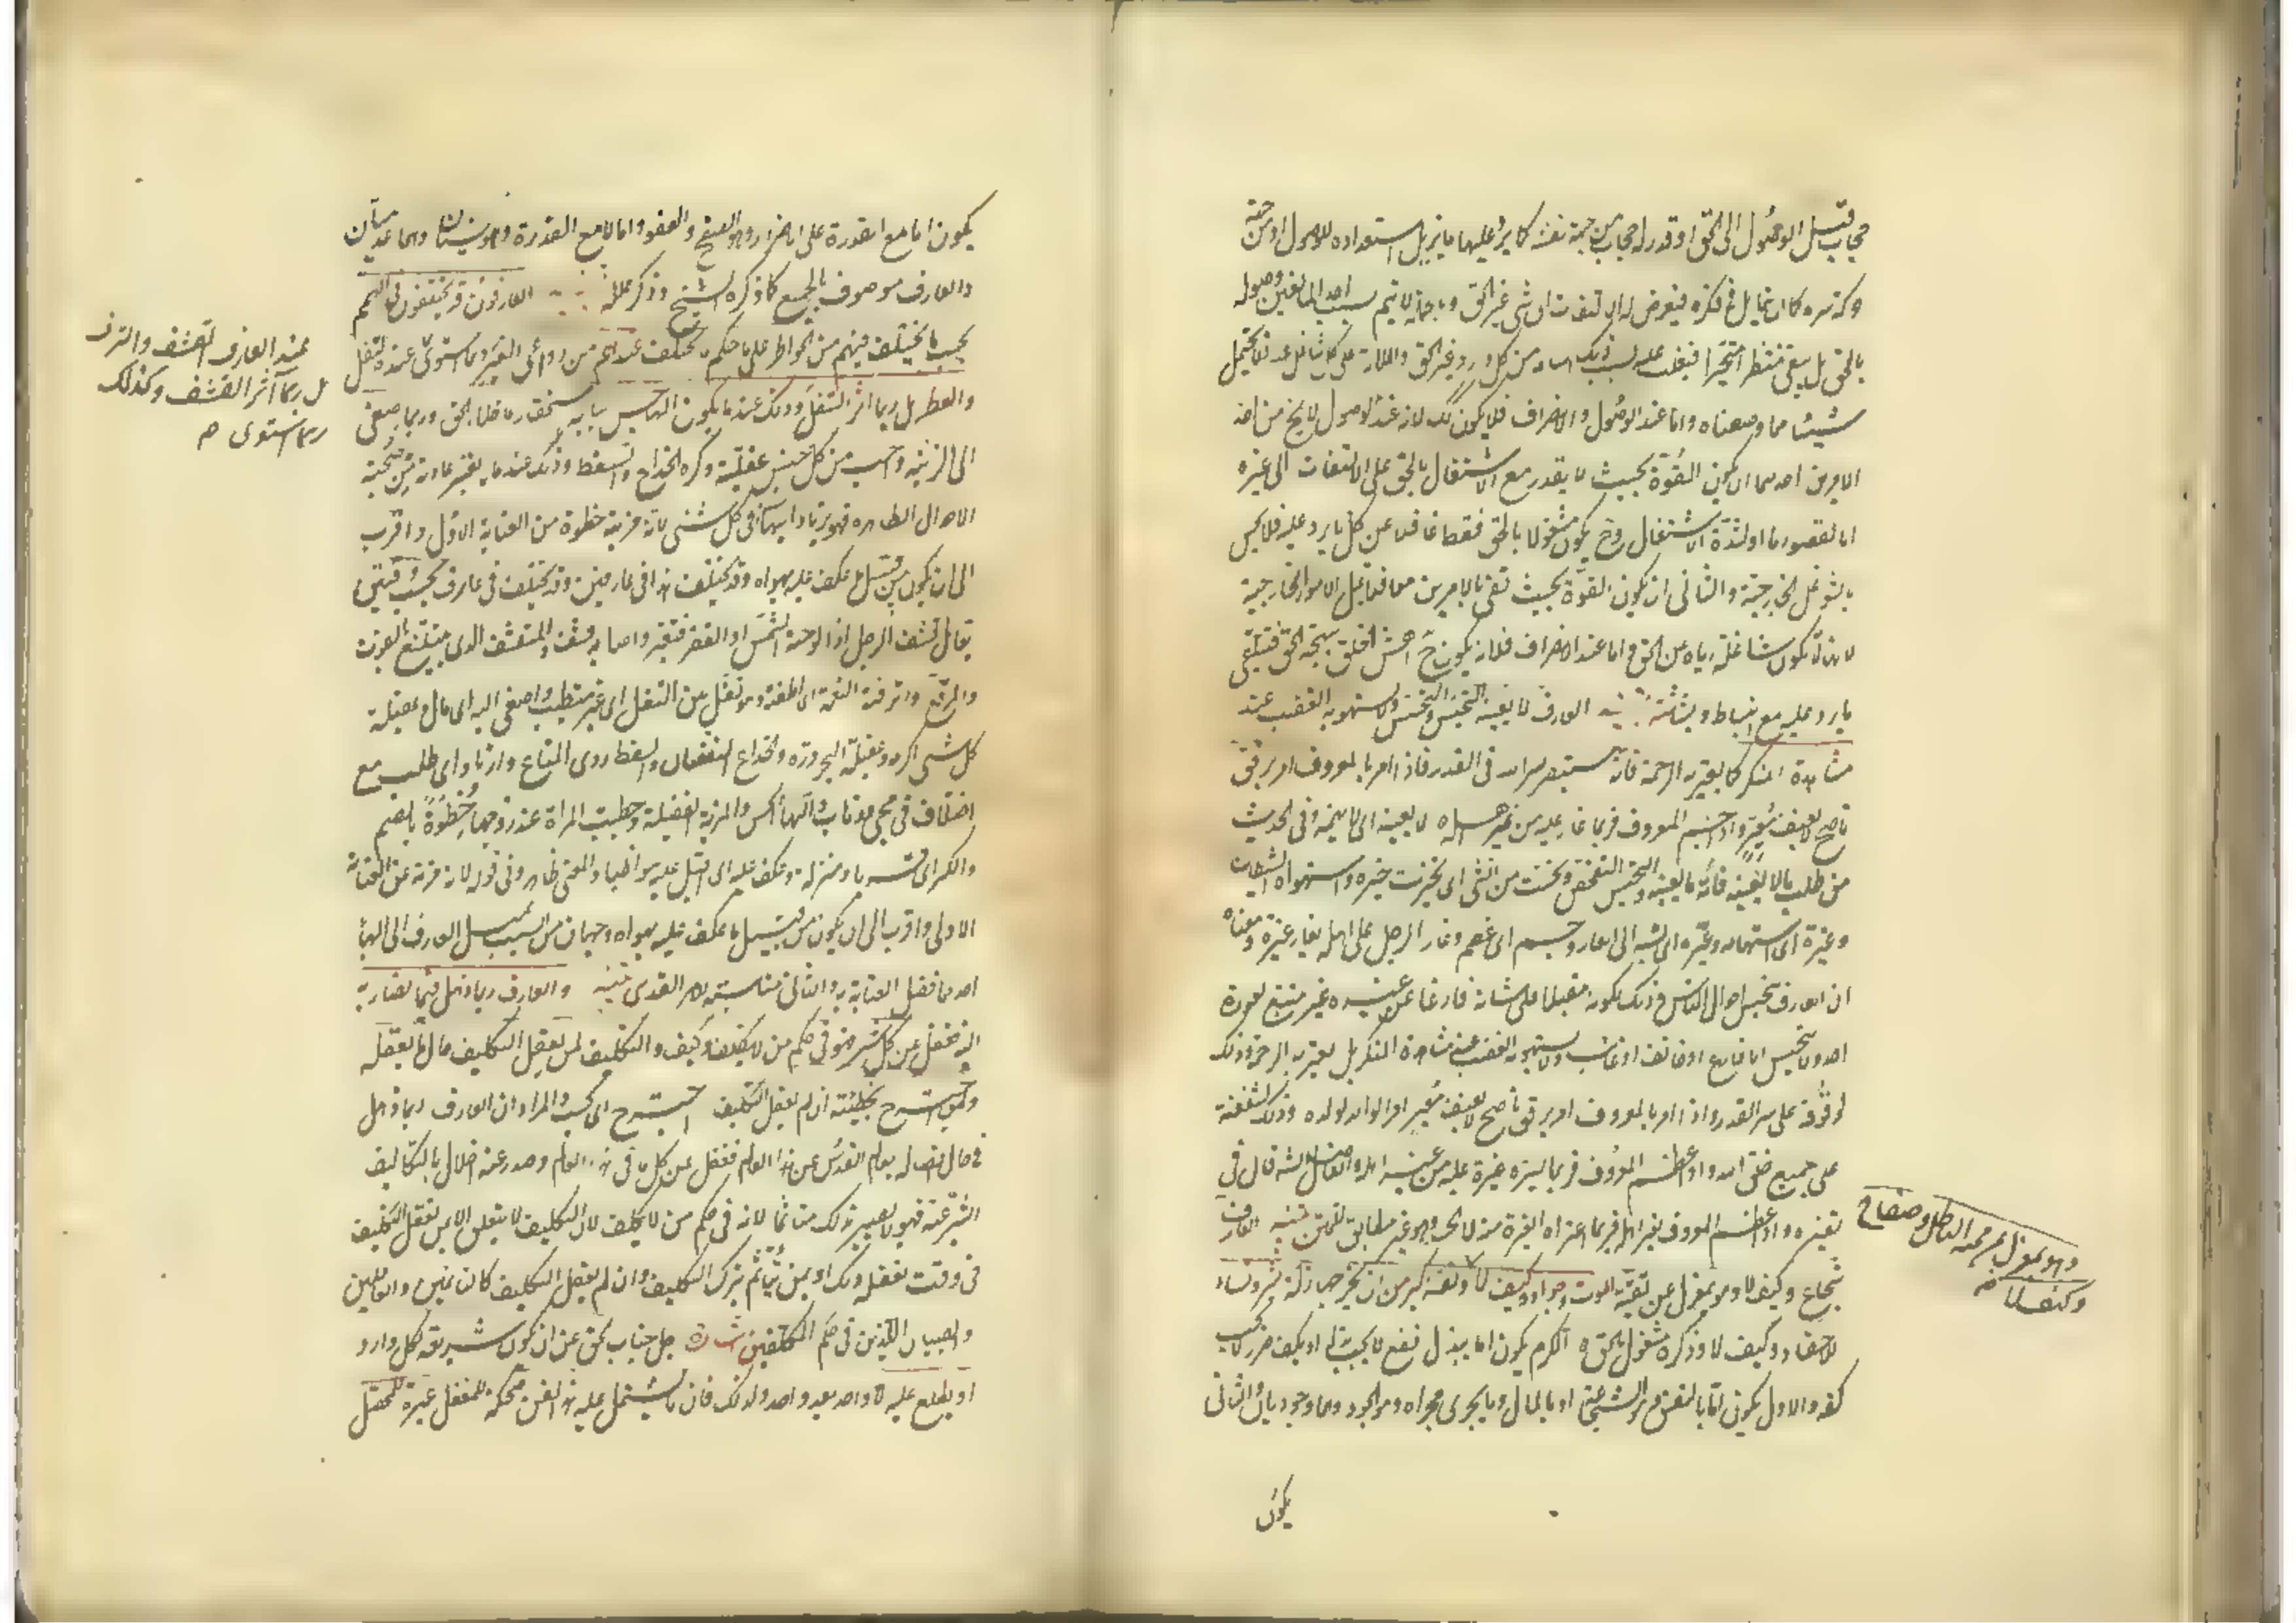 حجاب قبل الوصول الى الحق او قدر له حجاب من جهة نفسه كما يرد عليها ما يزيل استعداده للوصول او من جهة
حركة سره كما ان يتمايل في فكره فيعرض له الى التفات الى شئ غير الحق وبالجملة لا يتم بسبب احد المانعين وصوله
بالحق بل يبقى منتظرا متحيرا فيغلب عليه بسبب ذلك من كل وارد غير الحق والملالة على كل شاغل عنه فلا يحتمل
شيئا مما وصفناه واما عند الوصول والانصراف فلا يكون كذلك لانه عند الوصول لا يخ من احد
الامرين احدهما ان يكون القوة بحيث لا يقدر مع الاشتغال بالحق على الالتفات الى غيره
اما لقصورها او لشدة الاشتغال وح يكون مشغولا بالحق فقط غافلا عن كل ما يرد عليه فلا يحس
بالشواغل الخارجية والثانى ان يكون القوة بحيث تفى بالامرين معا فلا تمل الامور الخارجية
لانها لا تكون شاغلة اياه عن الحق واما عند الانصراف فلانه يكون ح اهش الخلق ببهجة الحق فيتلقى
ما يرد عليه مع انبساط وبشاشة تنبيه العارف لا يعنيه التجسس والتحسس ولا يستهويه الغضب عند
مشاهدة المنكر كما يعتريه الرحمة فانه مستبصر بسر الله فى القدر فاذا امر بالمعروف امر برفق
ناصح لا بعنف معير واذا جسم المعروف فربما غار عليه من غير اهله لا يعنيه اى لا يهمه وفى الحديث
من طلب ما لا يعنيه فاته ما يعنيه والتجسس التفحص وتحسست من الشئ اى تخبرت خبره واستهواه الشيطان
وغيره اى استهامه وعيره اى نسبه الى العار وجسم اى عظم وغار الرجل على اهله يغار غيرة ومعناه
ان العارف لا يتجسس احوال الناس وذلك لكونه مقبلا على شانه فارغا عن غيره غير متتبع لعورة
احد ولا يتجسس اما فارغ او خائف او غائب ولا يستهويه الغضب عند مشاهدة المنكر بل يعتريه الرحمة وذلك
لوقوفه على سر القدر واذا امر بالمعروف امر برفق ناصح لا بعنف معير امر الوالد لولده وذلك لشفقته
على جميع خلق الله واذا عظم المعروف فربما يستره غيرة عليه من غير اهله والفاضل الشارح قال فى
تفسيره واذا عظم المعروف بغير اهله فربما اعتراه الغيرة منه لا الحسد وهو غير مطابق للمتن تنبيه العارف
شجاع وكيف لا وهو بمعزل عن تقية الموت وجواد وكيف لا ونفسه اكبر من ان تجرحها زلة بشر ونساء
للاحقاد وكيف لا وذكره مشغول بالحق الكرم يكون اما ببذل نفع لا يجب بذله او بكف ضرر لا يجب
كفه والاول يكون اما بالنفس وهو الشجاعة او بالمال وما يجرى مجراه وهو الجود وهما وجوديان والثانى
وهو بمعزل عن محبة الباطل وصفاح
وكيف لا
يكون
يكون اما مع القدرة على الاضرار وهو الصفح والعفو واما لا مع القدرة وهو نسيان الاحقاد وهما عدميان
والعارف موصوف بالجميع كما ذكره الشيخ وذكر علله تنبيه العارفون قد يختلفون فى الهمم
بحسب ما يختلف فيهم من الخواطر على حكم ما يختلف عندهم من دواعى العبر وربما استوى عنده التفل
والعطر بل ربما آثر التفل وذلك عند ما يكون الهاجس بباله استحقار ما خلا الحق وربما صغى
الى الزينة واحب من كل جنس عقيلته وكره الخداج والسقط وذلك عند ما يعتبر عادته من صحبة
الاحوال الظاهرة فهو يرتاد البهاء فى كل شئ لانه مزية حظوة من العناية الاولى واقرب
الى ان يكون من قبيل ما عكف عليه بهواه وقد يختلف هذا فى عارفين وقد يختلف فى عارف بحسب وقتين
يقال قشف الرجل اذا لوحته الشمس او الفقر فتغير واصابه قشف والمتقشف الذى يتبلغ بالقوت
والمرقع واترفته النعمة اى اطغته وهو تفل بين التفل اى غير متطيب واصغى اليه اى مال وعقيلة
كل شئ اكرمه وعقيلة البحر دره والخداج النقصان والسقط ردى المتاع وارتاد اى طلب مع
اختلاف فى مجئ وذهاب والبهاء الحسن والمزية الفضيلة وحظيت المراة عند زوجها حظوة بالضم
والكسر اى قربها ومنزلة وعكف عليه اى اقبل عليه مواظبا والمعنى ظاهر وفى قوله لانه مزية من العناية
الاولى واقرب الى ان يكون من قبيل ما عكف عليه بهواه وجهان من سبب ميل العارف الى البهاء
احدهما فضل العناية به والثانى مناسبته لامر القدس تنبيه والعارف ربما ذهل فيما يصار به
اليه فغفل عن كل شئ فهو فى حكم من لا يكلف وكيف والتكليف لمن يعقل التكليف حال ما يعقله
ولمن اجترح بخطيئته ان لم يعقل التكليف اجترح اى كسب والمراد ان العارف ربما ذهل
فى حال اتصاله بعالم القدس عن هذا العالم فغفل عن كل ما فى هذا العالم وصدر عنه اخلال بالتكاليف
الشرعية فهو لا يصير بذلك متاثما لانه فى حكم من لا يكلف لان التكليف لا يتعلق الا بمن يعقل التكليف
فى وقت تعقله ذلك او بمن يتاثم بترك التكليف وان لم يعقل التكليف كالنائمين والغافلين
والصبيان الذين فى حكم المكلفين اشارة جل جناب الحق عن ان يكون شريعة لكل وارد
او يطلع عليه الا واحد بعد واحد ولذلك فان ما يشتمل عليه هذا الفن ضحكة للمغفل عبرة للمحصل
عند العارف القشف والترف
بل ربما آثر القشف وكذلك
ربما استوى صح